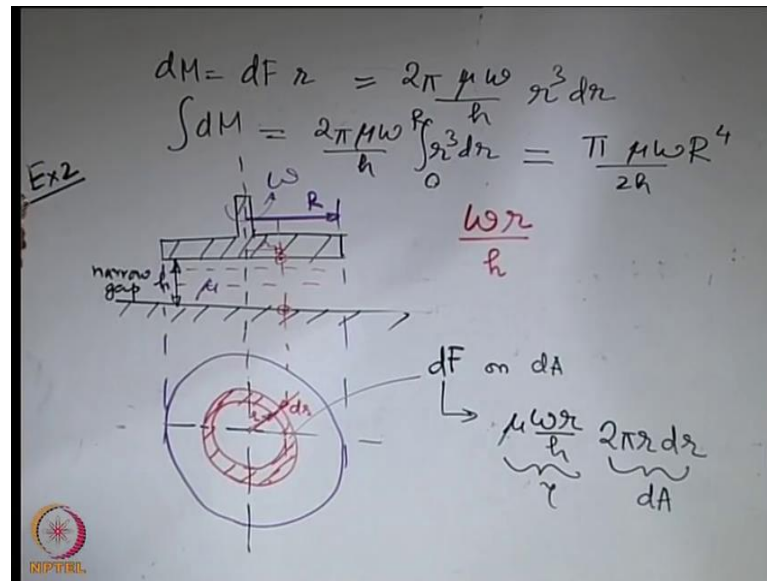 dM = dF r = 2π μω/h r³dr
∫dM = 2πμω/h ∫₀ᴿ r³dr = π μωR⁴/2h
Ex2
ω
R
ωr/h
narrow gap h
μ
dF on dA
r
dr
μωr/h 2πrdr
τ dA
NPTEL